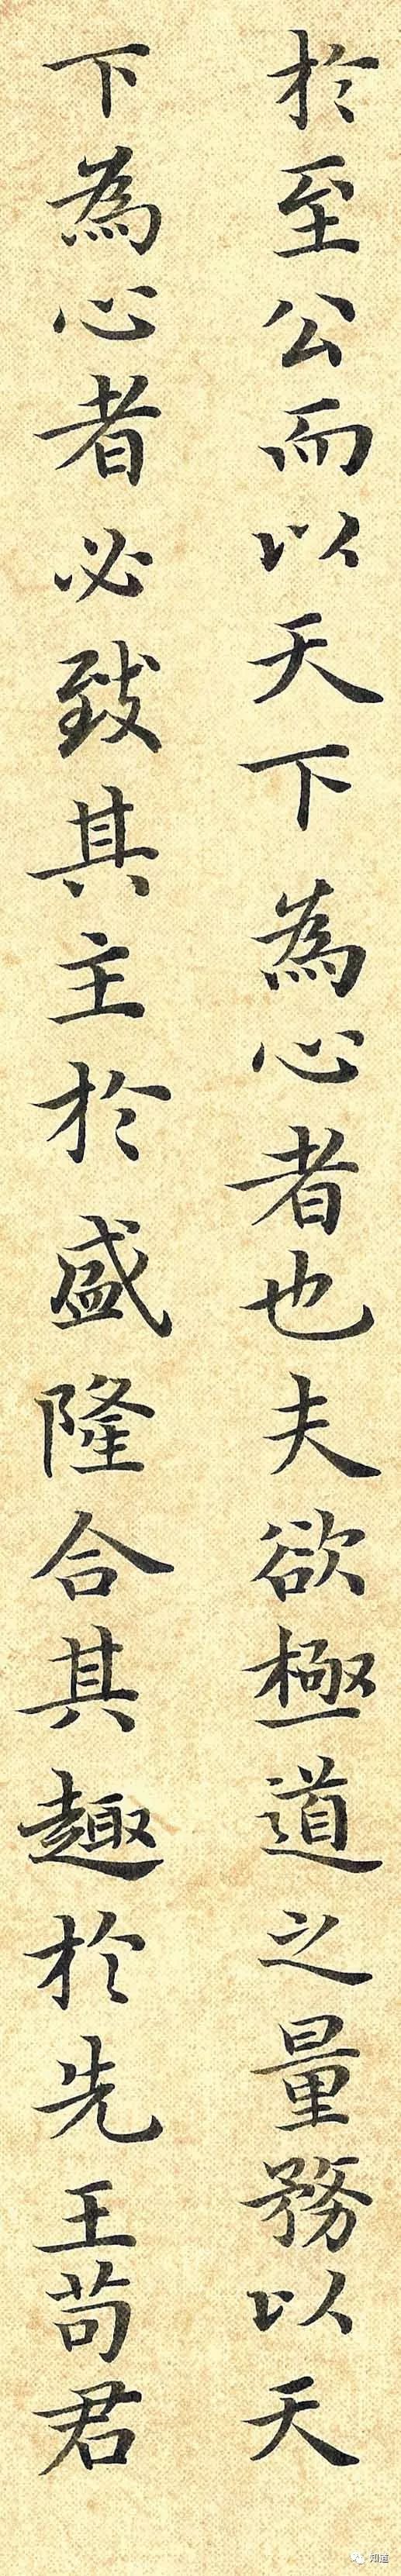 於至公而以天下為心者也夫欲極道之量務以天
下為心者必致其主於盛隆合其趣於先王苟君
知道